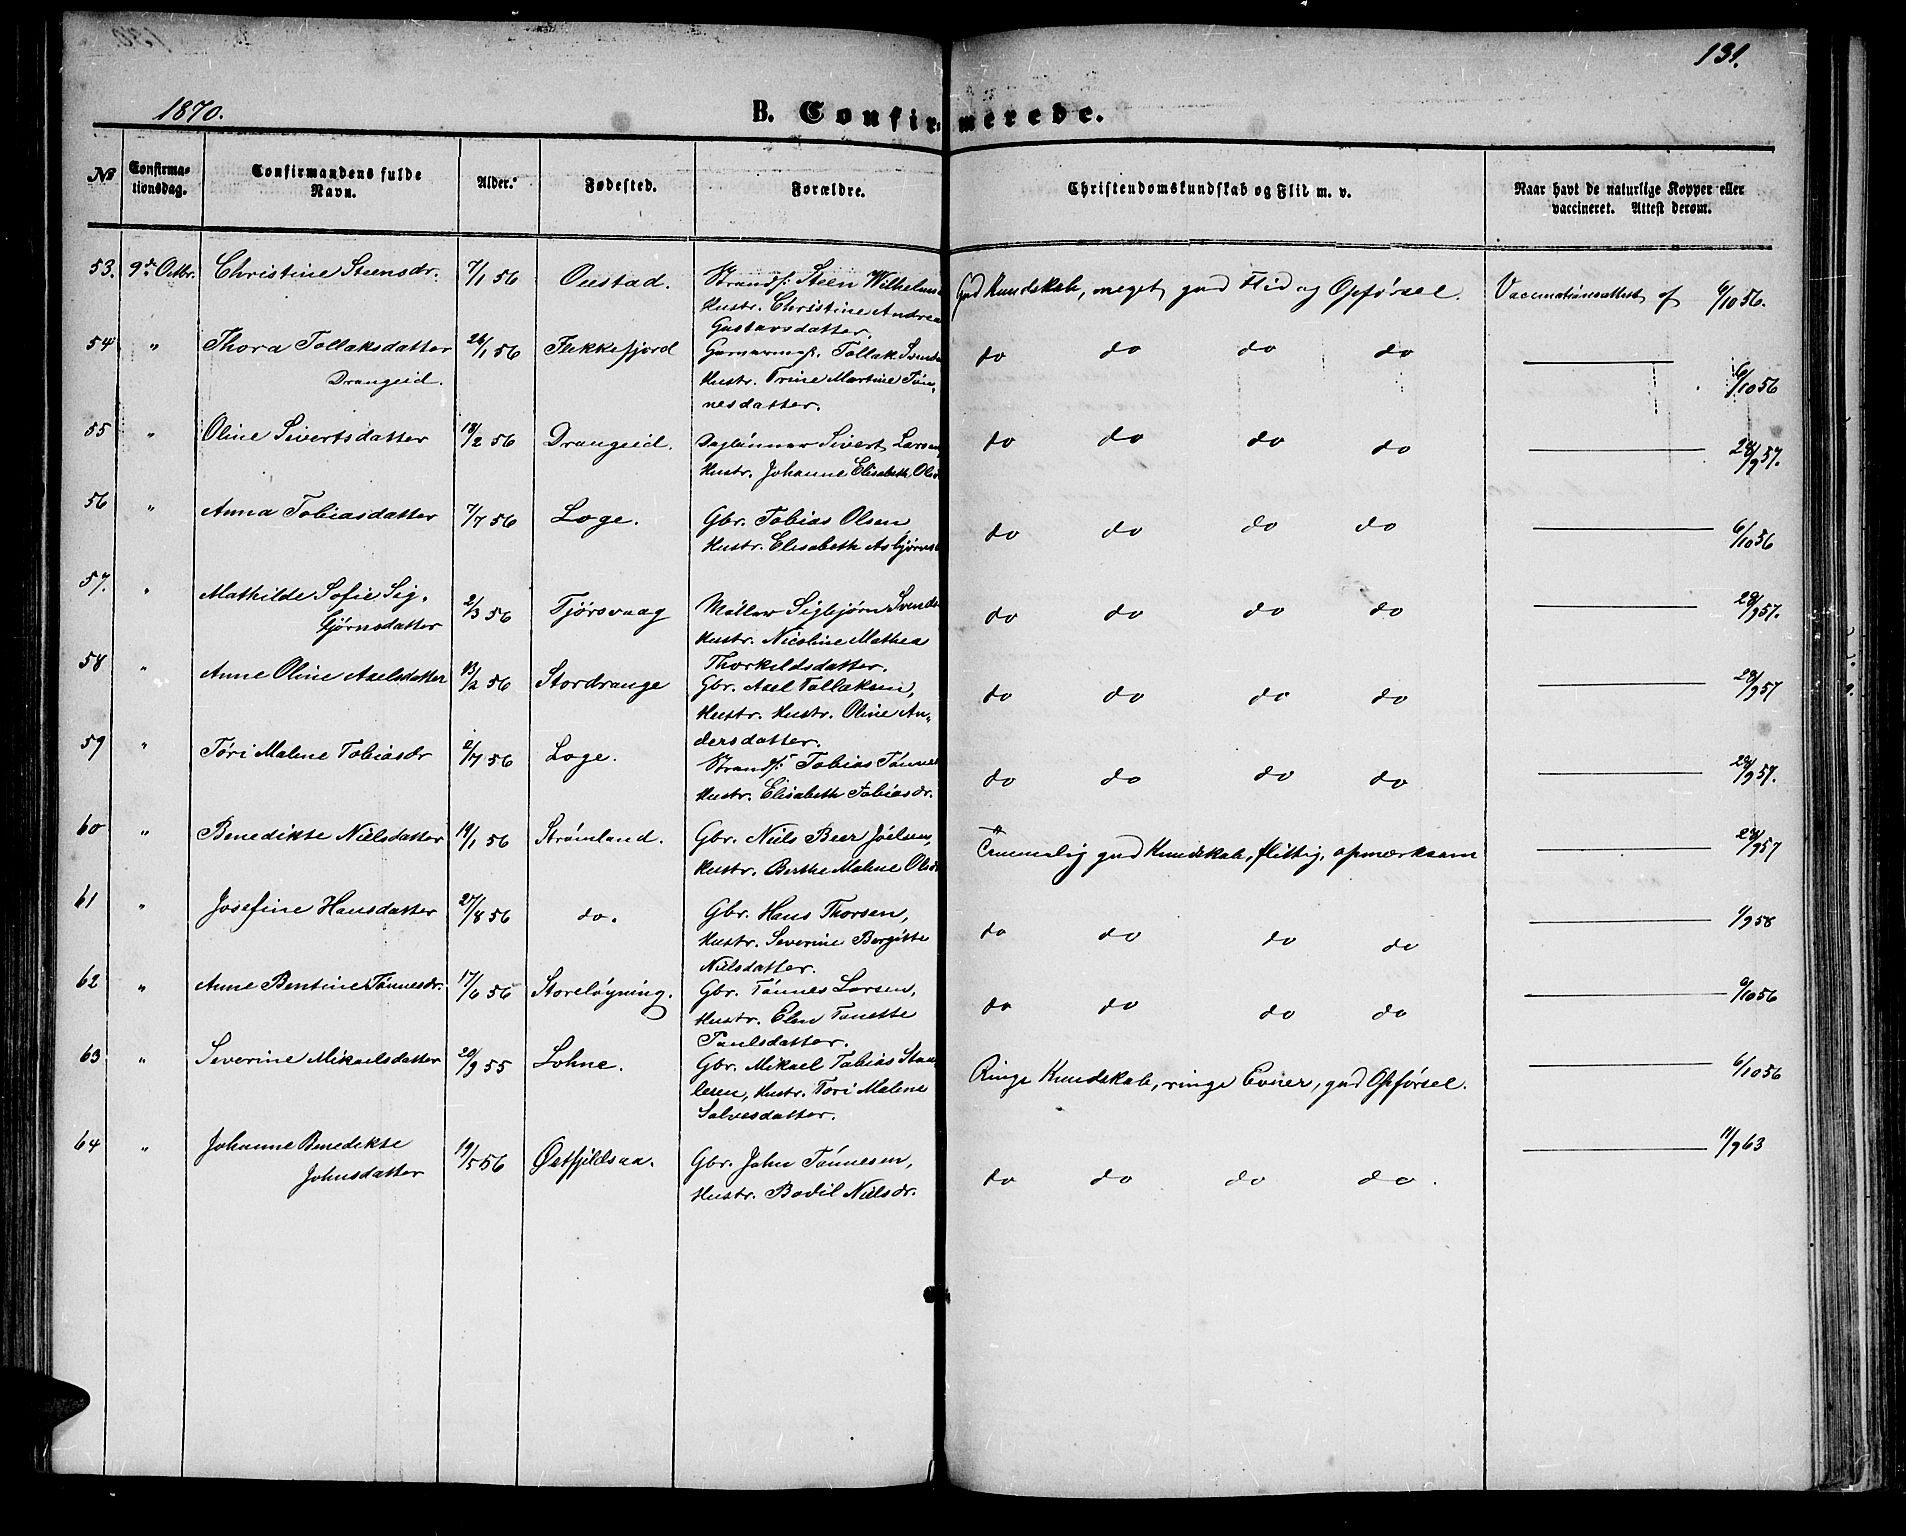 131.
1870.
B. Confirmerede.
№ Confirma-tionsdag. Confirmandens fulde Navn. Alder. Fødested. Forældre. Christendomskundskab og Flid m. v. Naar havt de naturlige Kopper eller vaccineret. Attest derom.
53. 9de Octbr. Christine Steensdr. 7/1 56 Oustad. Strandf: Steen Wilhelms God Kundskab, meget god Flid og Opførsel. Vaccinationsattest af 6/10 56.
Hustr. Christine Andrea
Gustavsdatter.
54 " Thora Tollaksdatter 26/1 56 Flekkefjord Garverm. Tollak Svends do do do do 6/10 56
Drangeid. Hustr. Trine Martine Tøn-
nesdatter.
55 " Oline Sivertsdatter 18/2 56 Drangeid. Daglønner Sivert Larsen, do do do do 28/9 57.
Hustr. Johanne Elisabeth Olsd
56 " Anna Tobiasdatter 7/7 56 Loge. Gbr. Tobias Olsen do do do do 6/10 56
Hustr. Elisabeth Asbjørnsd
57. " Mathilde Sofie Sig- 2/3 56 Tjørsvaag Møller Sigbjørn Svends do do do do 28/9 57.
bjørnsdatter Hustr. Nicoline Mathea
Thorkildsdatter.
58 " Anne Oline Axelsdatter 13/2 56 Stordrange Gbr. Axel Tollaksen, do do do do 28/9 57
Hustr. Hustr. Oline An-
dersdatter.
59 " Tøri Malene Tobiasdr 2/7 56 Loge. Strandf: Tobias Tønnes do do do do 28/9 57.
Hustr. Elisabeth Tobiasdr.
60 " Benedikte Nielsdatter 19/1 56 Strømland. Gbr. Niels Beer Joelsen, Temmelig god Kundskab, flittig, opmærksam 28/9 57
Hustr. Berthe Malene Olsd
61 " Josefine Hansdatter 27/8 56 do. Gbr. Hans Thorsen, do do do do 1/9 58
Hustr. Severine Bergitte
Nielsdatter.
62 " Anne Bentine Tønnesdr. 17/6 56 Storeløgning. Gbr. Tønnes Larsen, do do do do 6/10 56
Hustr. Elen Tonette
Paulsdatter.
63 " Severine Mikaelsdatter 20/9 55 Lohne. Gbr. Mikael Tobias Staa- Ringe Kundskab, ringe Evner, god Opførsel. 6/10 56
lesen, Hustr. Tøri Malene
Salvesdatter.
64 " Johanne Benedikte 19/5 56 Østfjeldsaa. Gbr. John Tønnesen, do do do do. 11/9 63
Johnsdatter Hustr. Bodil Nielsdr.